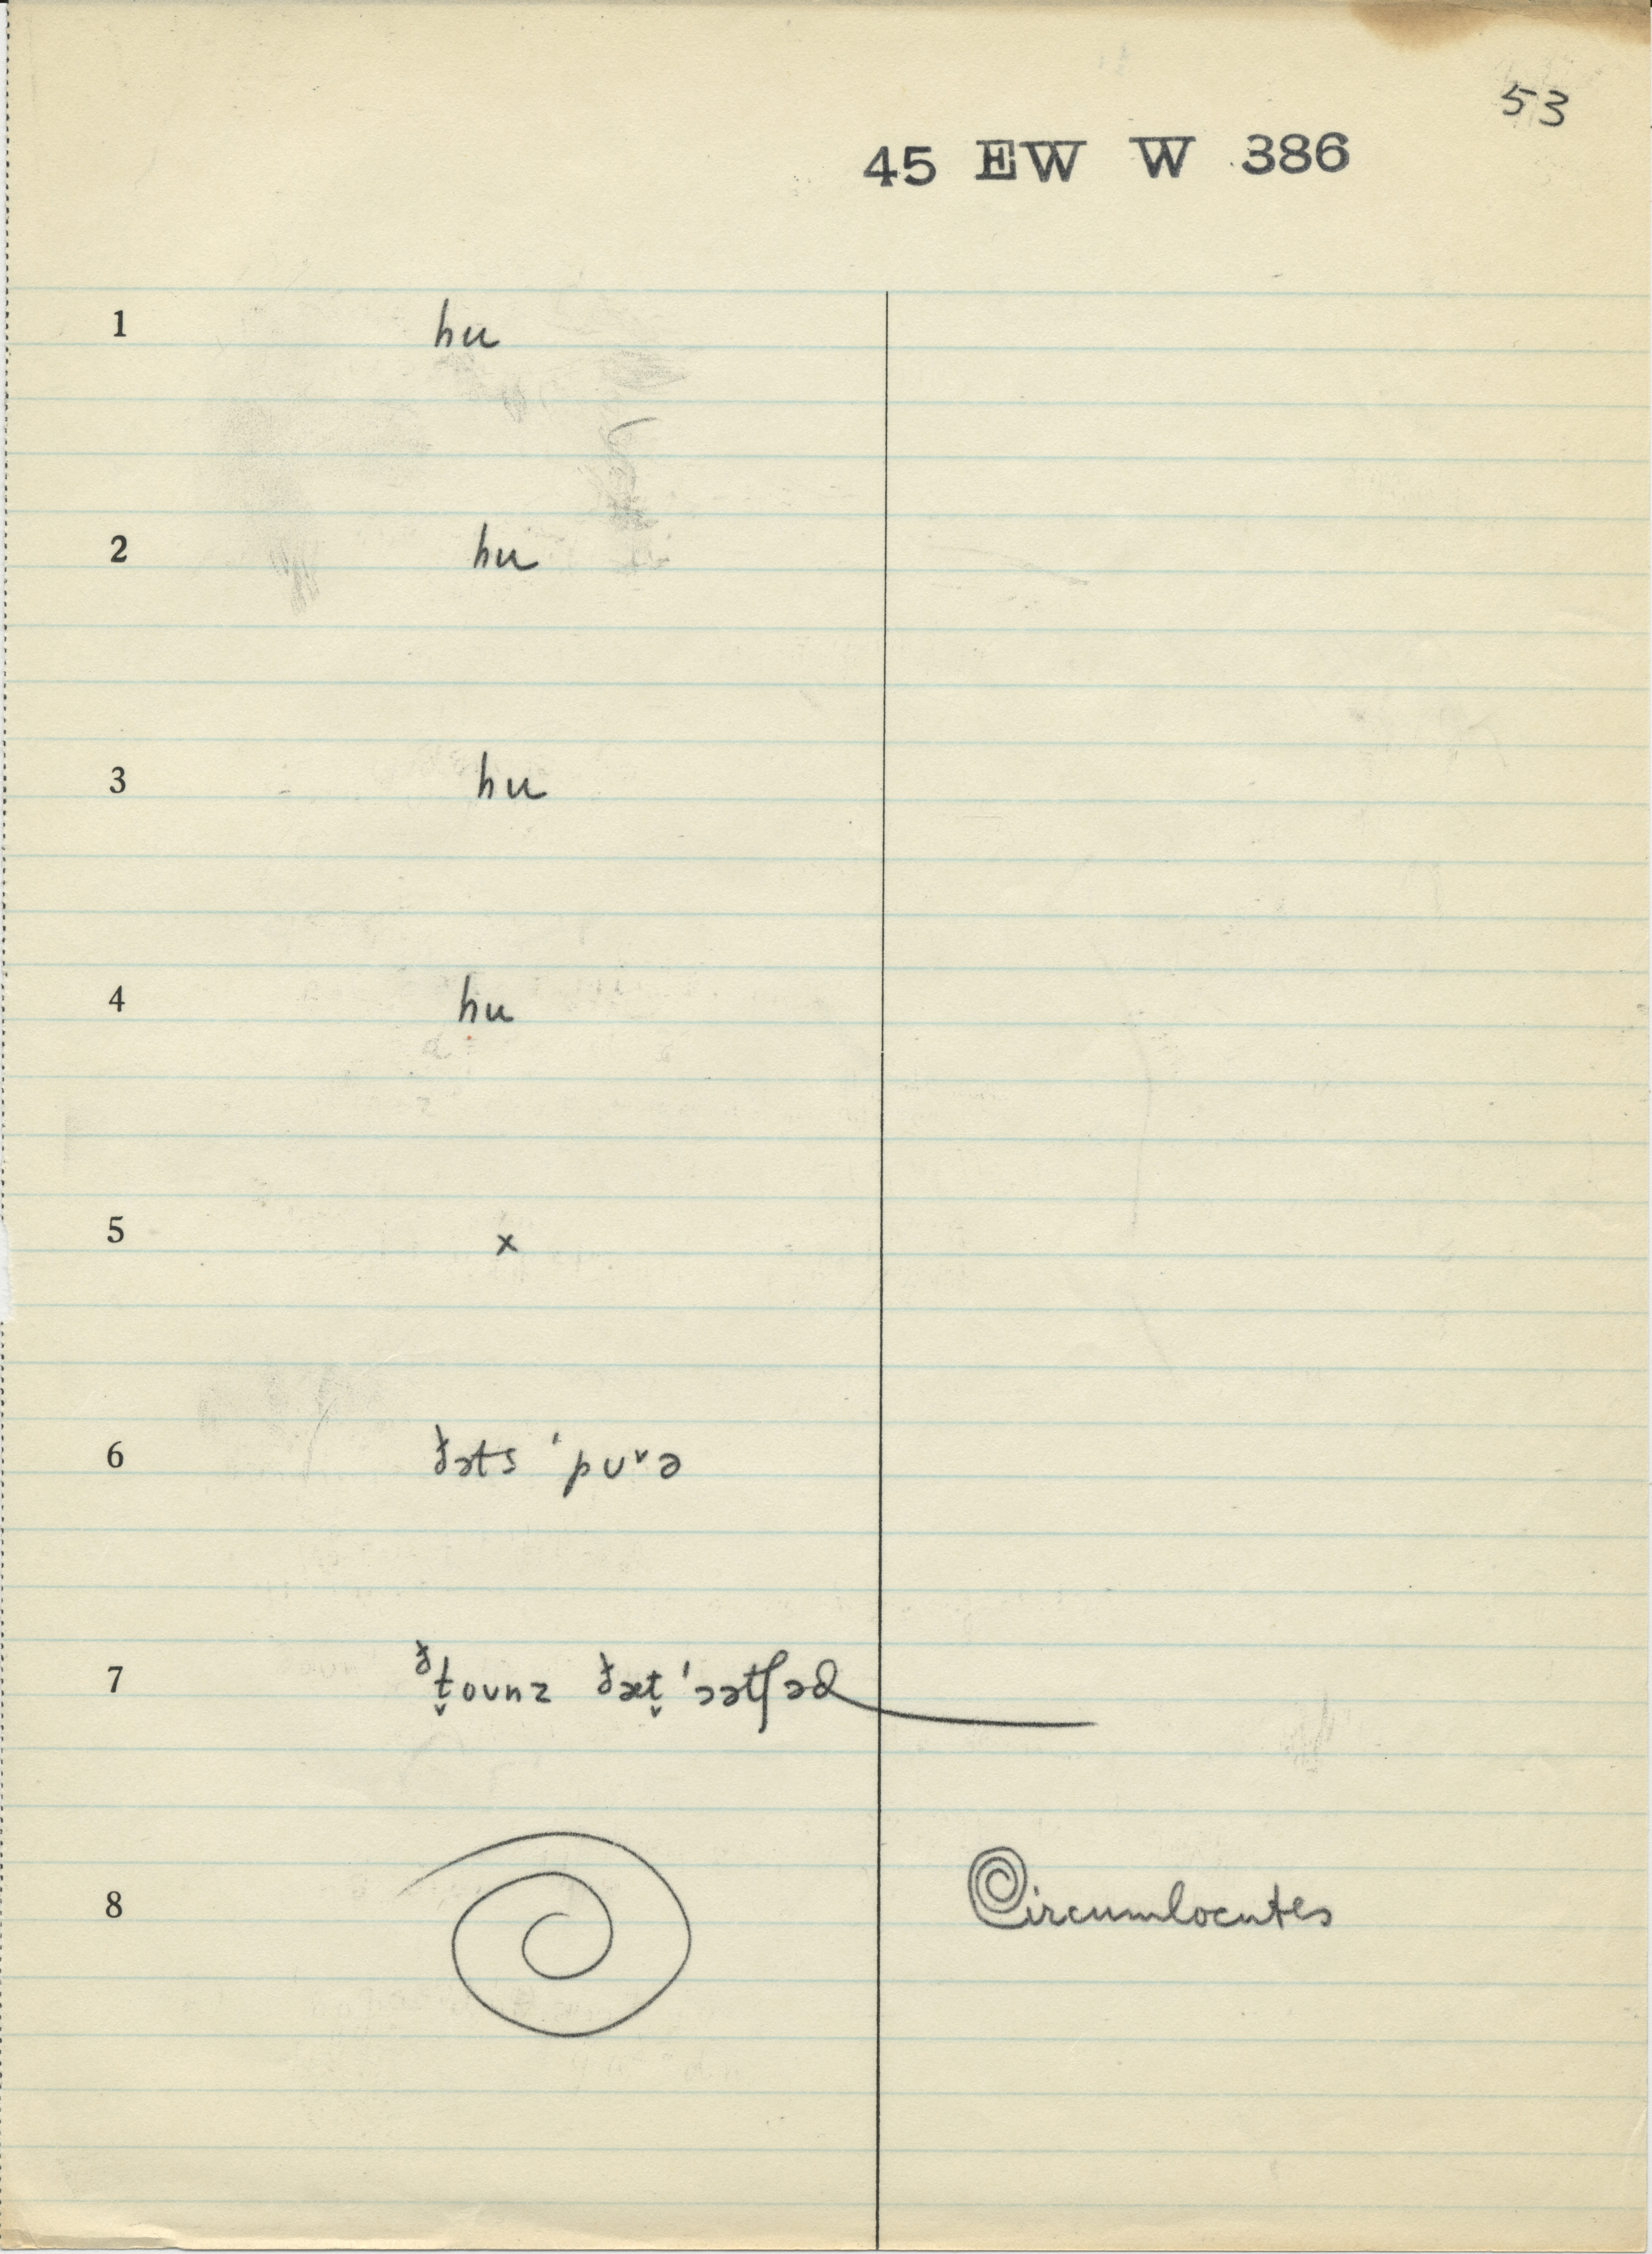 53
45 EW W 386
1 hu
2 hu
3 hu
4 hu
5 x
6 ðəts ˈpuᵛə
7 ᶞt̬oʊnz ðæt̬ ˈɔətʃəd
8 Circumlocutes